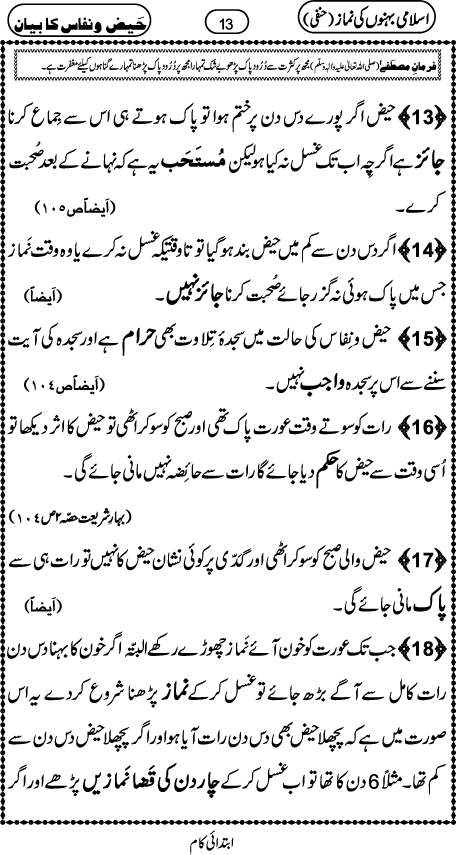 اسلامی بہنوں کی نماز (حنفی)
13
حَیض و نفاس کا بیان
فرمانِ مصطَفٰے (صلی اللہ تعالیٰ علیہ واٰلہٖ وسلم) مجھ پر کثرت سے دُرُود پاک پڑھو بے شک تمہارا مجھ پر دُرُود پاک پڑھنا تمہارے گناہوں کیلئے مغفرت ہے۔
﴿13﴾ حَیض اگر پورے دس دن پر ختم ہوا تو پاک ہوتے ہی اس سے جِماع کرنا
جائز ہے اگرچِہ اب تک غسل نہ کیا ہو لیکن مُستَحَب یہ ہے کہ نہانے کے بعد صُحبت
کرے۔ (اَیضاً ص۱۰۵)
﴿14﴾ اگر دس دن سے کم میں حَیض بند ہو گیا تو تاوقتیکہ غسل نہ کرے یا وہ وقتِ نَماز
جس میں پاک ہوئی نہ گزر جائے صُحبت کرنا جائز نہیں۔ (اَیضاً)
﴿15﴾ حَیض و نِفاس کی حالت میں سجدۂ تِلاوت بھی حرام ہے اور سجدہ کی آیت
سننے سے اس پر سجدہ واجِب نہیں۔ (اَیضاً ص۱۰٤)
﴿16﴾ رات کو سوتے وقت عورت پاک تھی اور صبح کو سو کر اٹھی تو حَیض کا اثر دیکھا تو
اُسی وقت سے حَیض کا حکم دیا جائے گا رات سے حائِضہ نہیں مانی جائے گی۔
(بہارِ شریعت حصّہ ۲ ص ۱۰٤)
﴿17﴾ حَیض والی صبح کو سو کر اٹھی اور گدّی پر کوئی نشان حَیض کا نہیں تو رات ہی سے
پاک مانی جائے گی۔ (اَیضاً)
﴿18﴾ جب تک عورت کو خون آئے نَماز چھوڑے رکھے البتّہ اگر خون کا بہنا دس دن
رات کامل سے آگے بڑھ جائے تو غسل کر کے نَماز پڑھنا شروع کر دے یہ اس
صورت میں ہے کہ پچھلا حَیض بھی دس دن رات آیا ہو اور اگر پچھلا حَیض دس دن سے
کم تھا۔ مثلاً 6 دن کا تھا تو اب غسل کر کے چار دن کی قَضا نَمازیں پڑھے اور اگر
ابتدائی کام